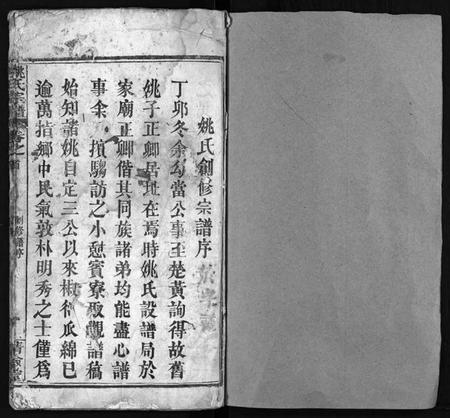 姚氏創修宗譜序
丁卯冬余勾當公事至楚黃詢得故舊
姚子正卿居址在焉時姚氏設譜局於
家廟正卿偕其同族諸弟均能盡心譜
事余 擯騶訪之小憩賓寮取觀譜稿
始知諸姚自定三公以來椒衍瓜綿已
逾萬指鄉中民氣敦朴明秀之士僅為
姚氏宗譜
卷之首
創修譜序